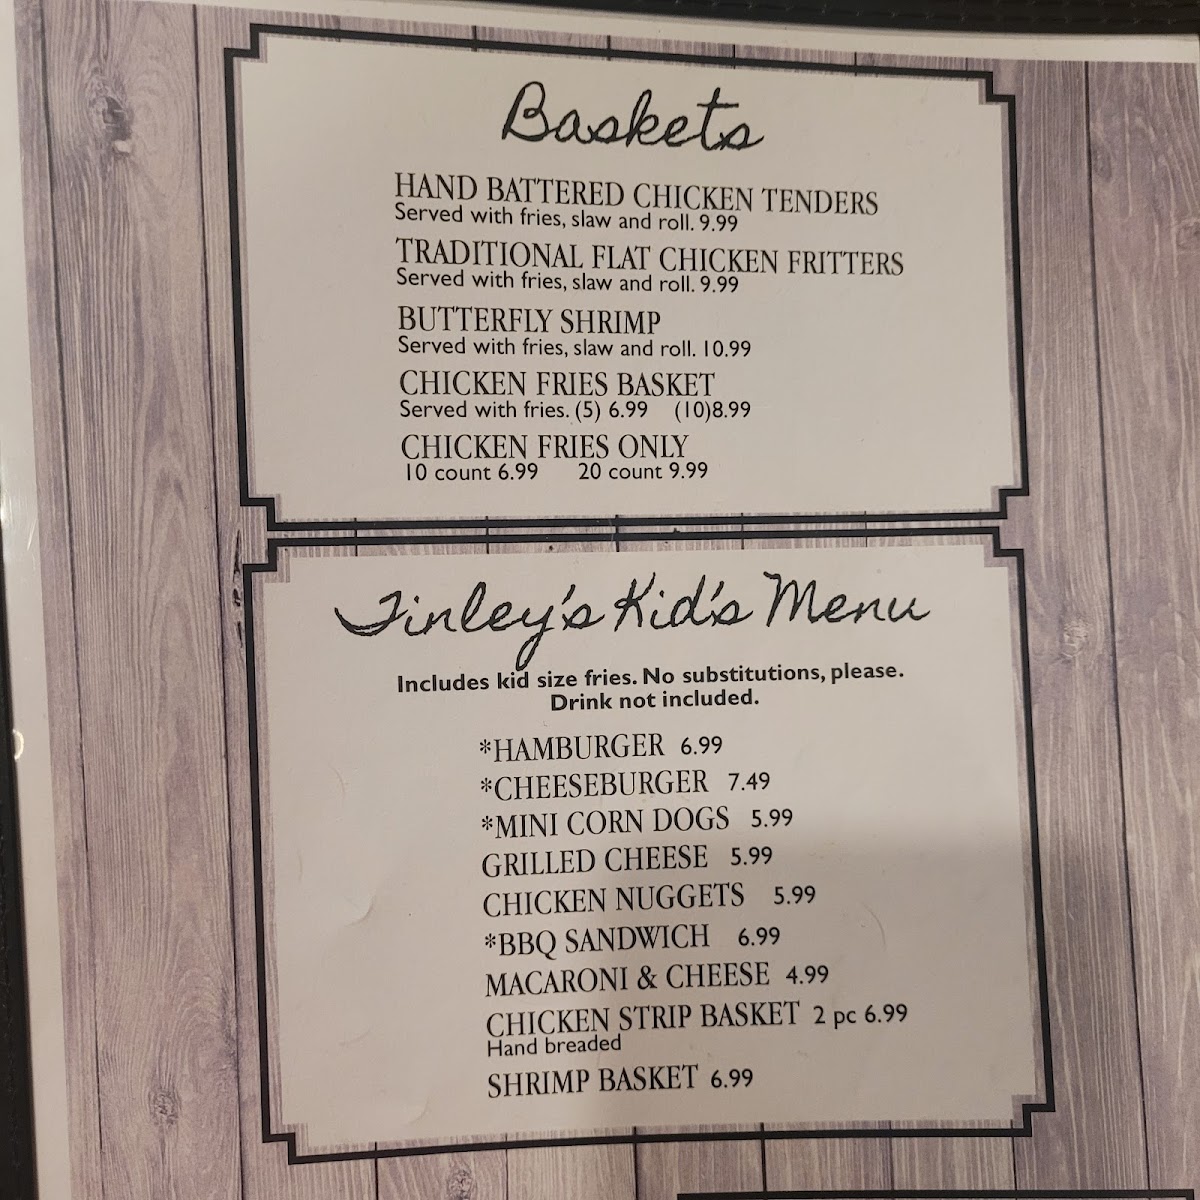 Baskets
HAND BATTERED CHICKEN TENDERS
Served with fries, slaw and roll. 9.99
TRADITIONAL FLAT CHICKEN FRITTERS
Served with fries, slaw and roll. 9.99
BUTTERFLY SHRIMP
Served with fries, slaw and roll. 10.99
CHICKEN FRIES BASKET
Served with fries. (5) 6.99 (10)8.99
CHICKEN FRIES ONLY
10 count 6.99 20 count 9.99
Tinley's Kid's Menu
Includes kid size fries. No substitutions, please.
Drink not included.
*HAMBURGER 6.99
*CHEESEBURGER 7.49
*MINI CORN DOGS 5.99
GRILLED CHEESE 5.99
CHICKEN NUGGETS 5.99
*BBQ SANDWICH 6.99
MACARONI & CHEESE 4.99
CHICKEN STRIP BASKET 2 pc 6.99
Hand breaded
SHRIMP BASKET 6.99